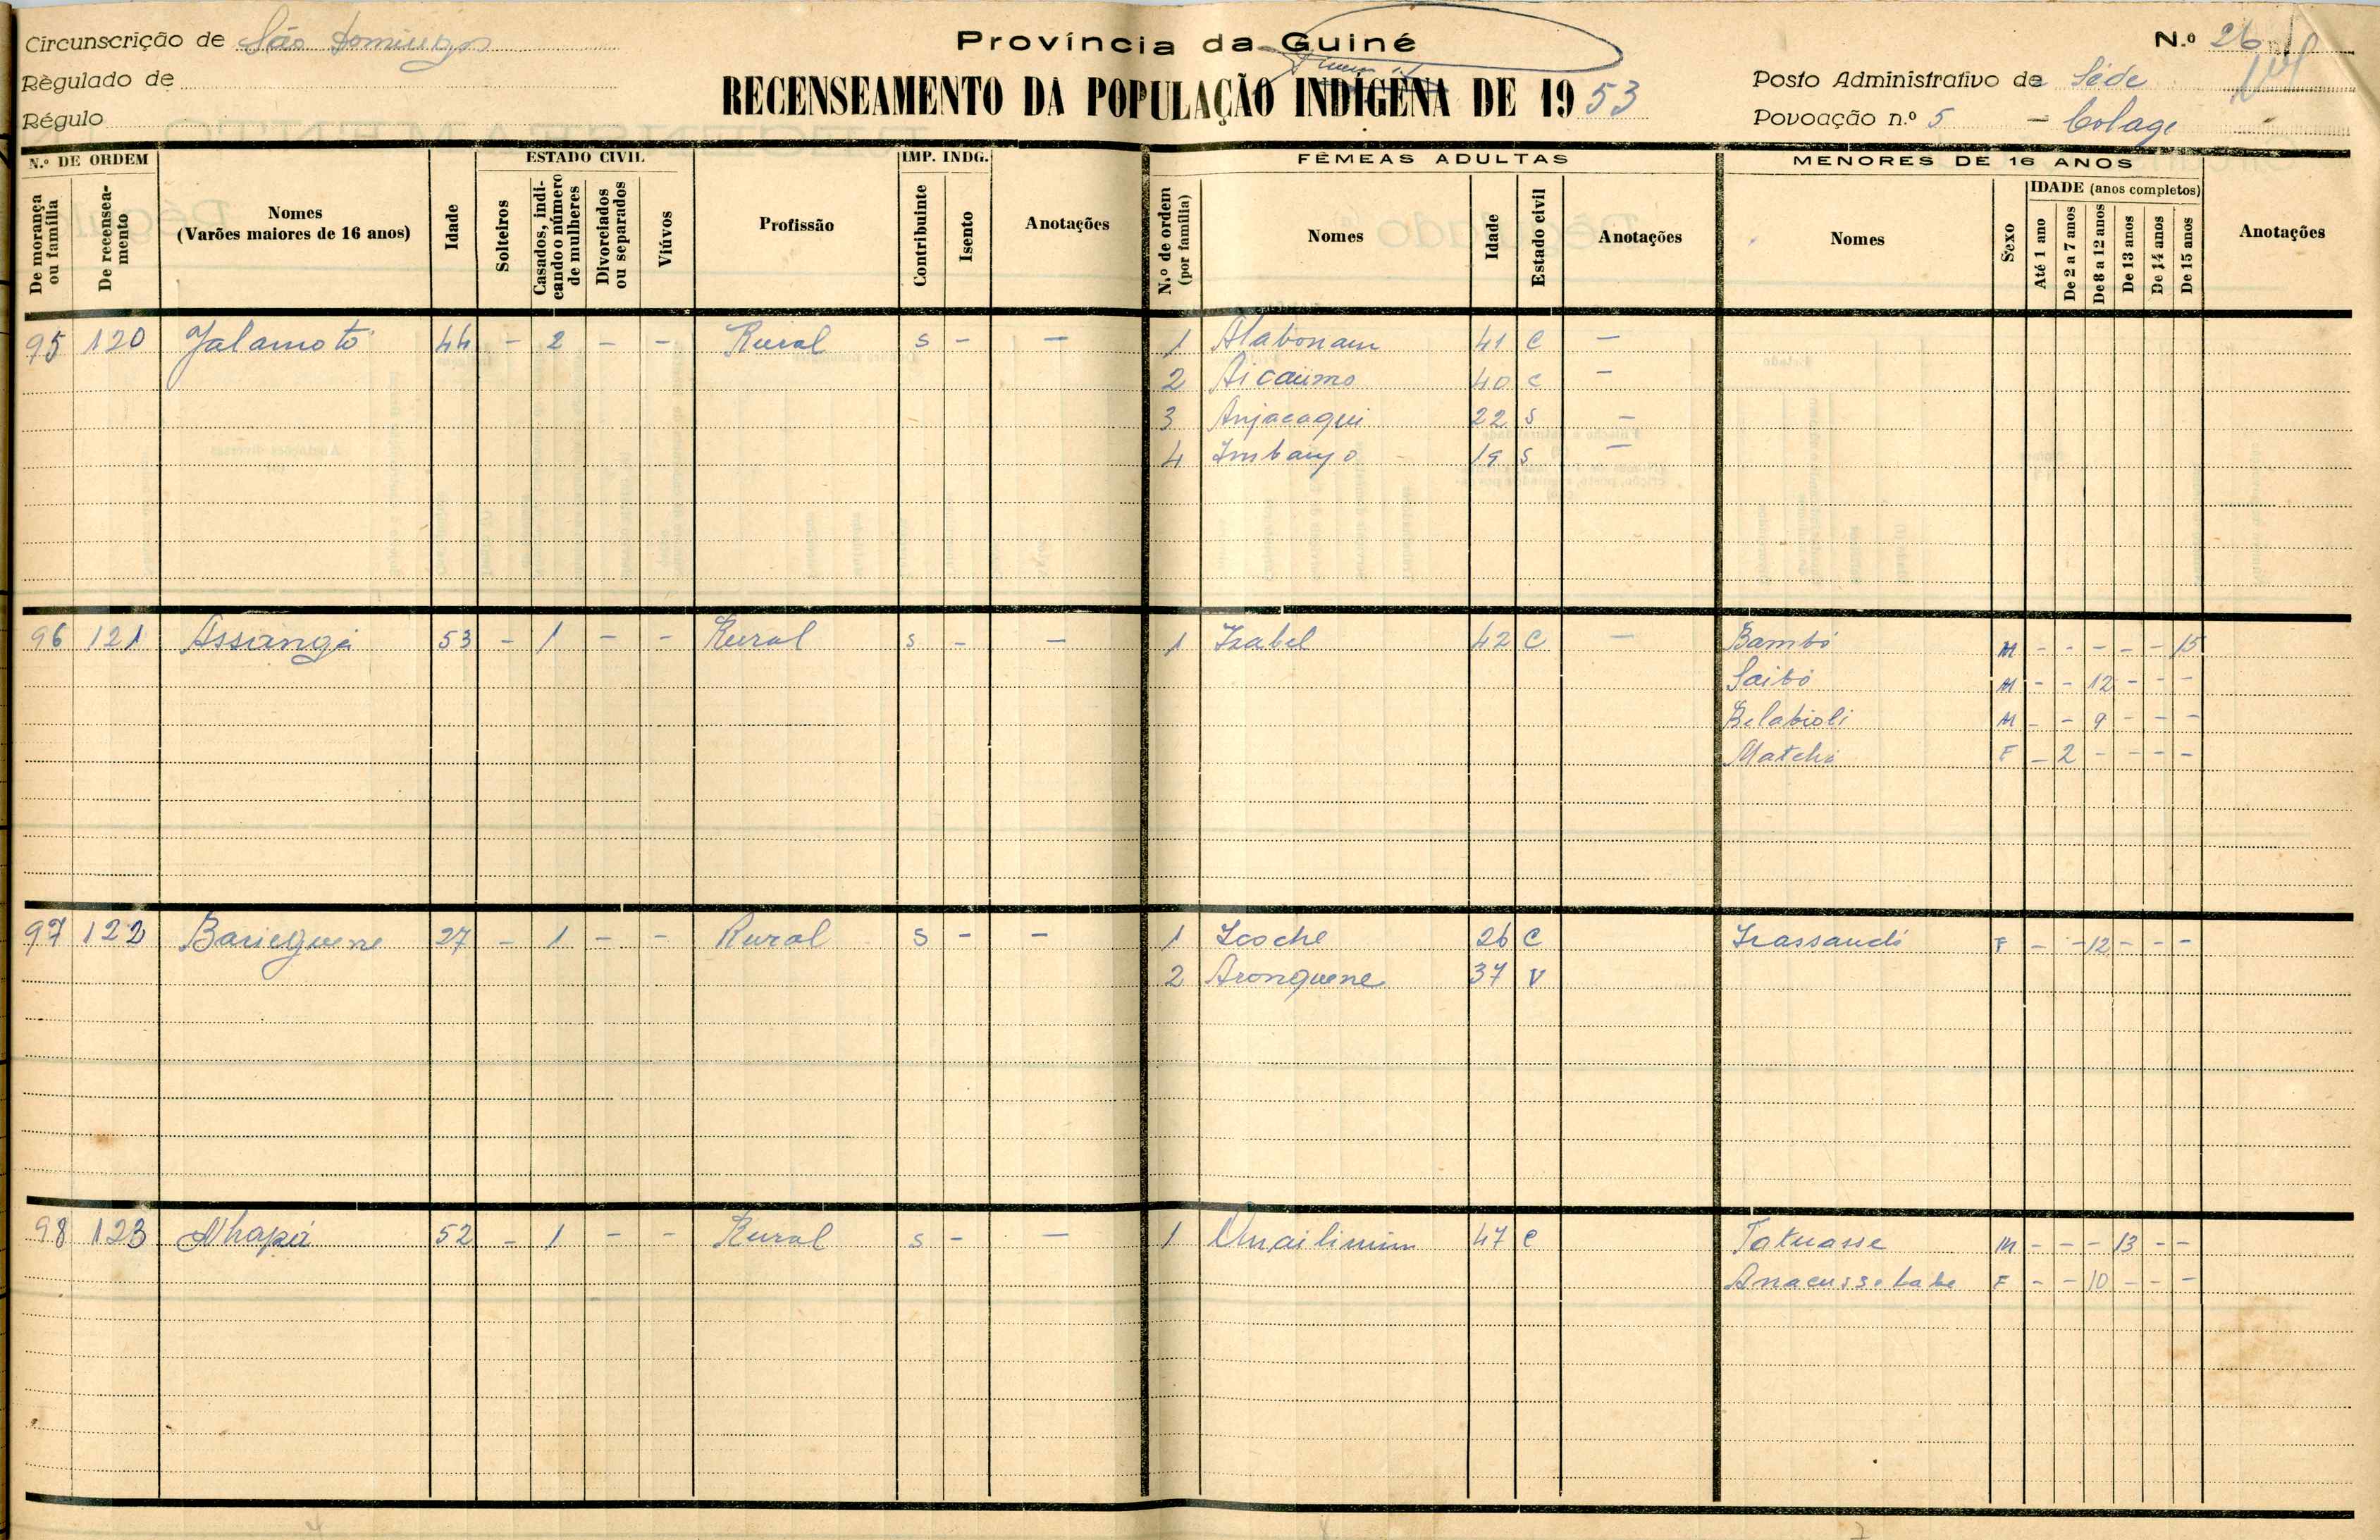 Circunscrição de São Domingos
Província da Guiné
N.º 26
Règulado de
RECENSEAMENTO DA POPULAÇÃO INDÍGENA DE 1953
Posto Administrativo de Séde
Régulo
Povoação n.º 5 - Colage
N.º DE ORDEM
ESTADO CIVIL
IMP. INDG.
FÊMEAS ADULTAS
MENORES DE 16 ANOS
De morança ou família
De recenseamento
Nomes
(Varões maiores de 16 anos)
Idade
Solteiros
Casados, indicando o número de mulheres
Divorciados ou separados
Viúvos
Profissão
Contribuinte
Isento
Anotações
N.º de ordem (por família)
Nomes
Idade
Estado civil
Anotações
Nomes
Sexo
IDADE (anos completos)
Até 1 ano
De 2 a 7 anos
De 8 a 12 anos
De 13 anos
De 14 anos
De 15 anos
Anotações
95 120 Jalamotó 44 - 2 - - Rural s - - 1 Alabonam 41 C -
2 Aicaumo 40 c -
3 Anjacaqui 22 s -
4 Imbanjo 19 s -
96 121 Assangá 53 - 1 - - Rural s - - 1 Izabel 42 C - Bambó M - - - - - 15
Saibó M - - 12 - - -
Belabioli M - - 9 - - -
Matchá F - 2 - - - -
97 122 Barieguene 27 - 1 - - Rural s - - 1 Icoche 26 C F - - 12 - - -
2 Aronguene 37 V
98 123 Nhapá 52 - 1 - - Rural s - - 1 47 C Tatuasse M - - - 13 - -
Anacussebabe F - - 10 - - -